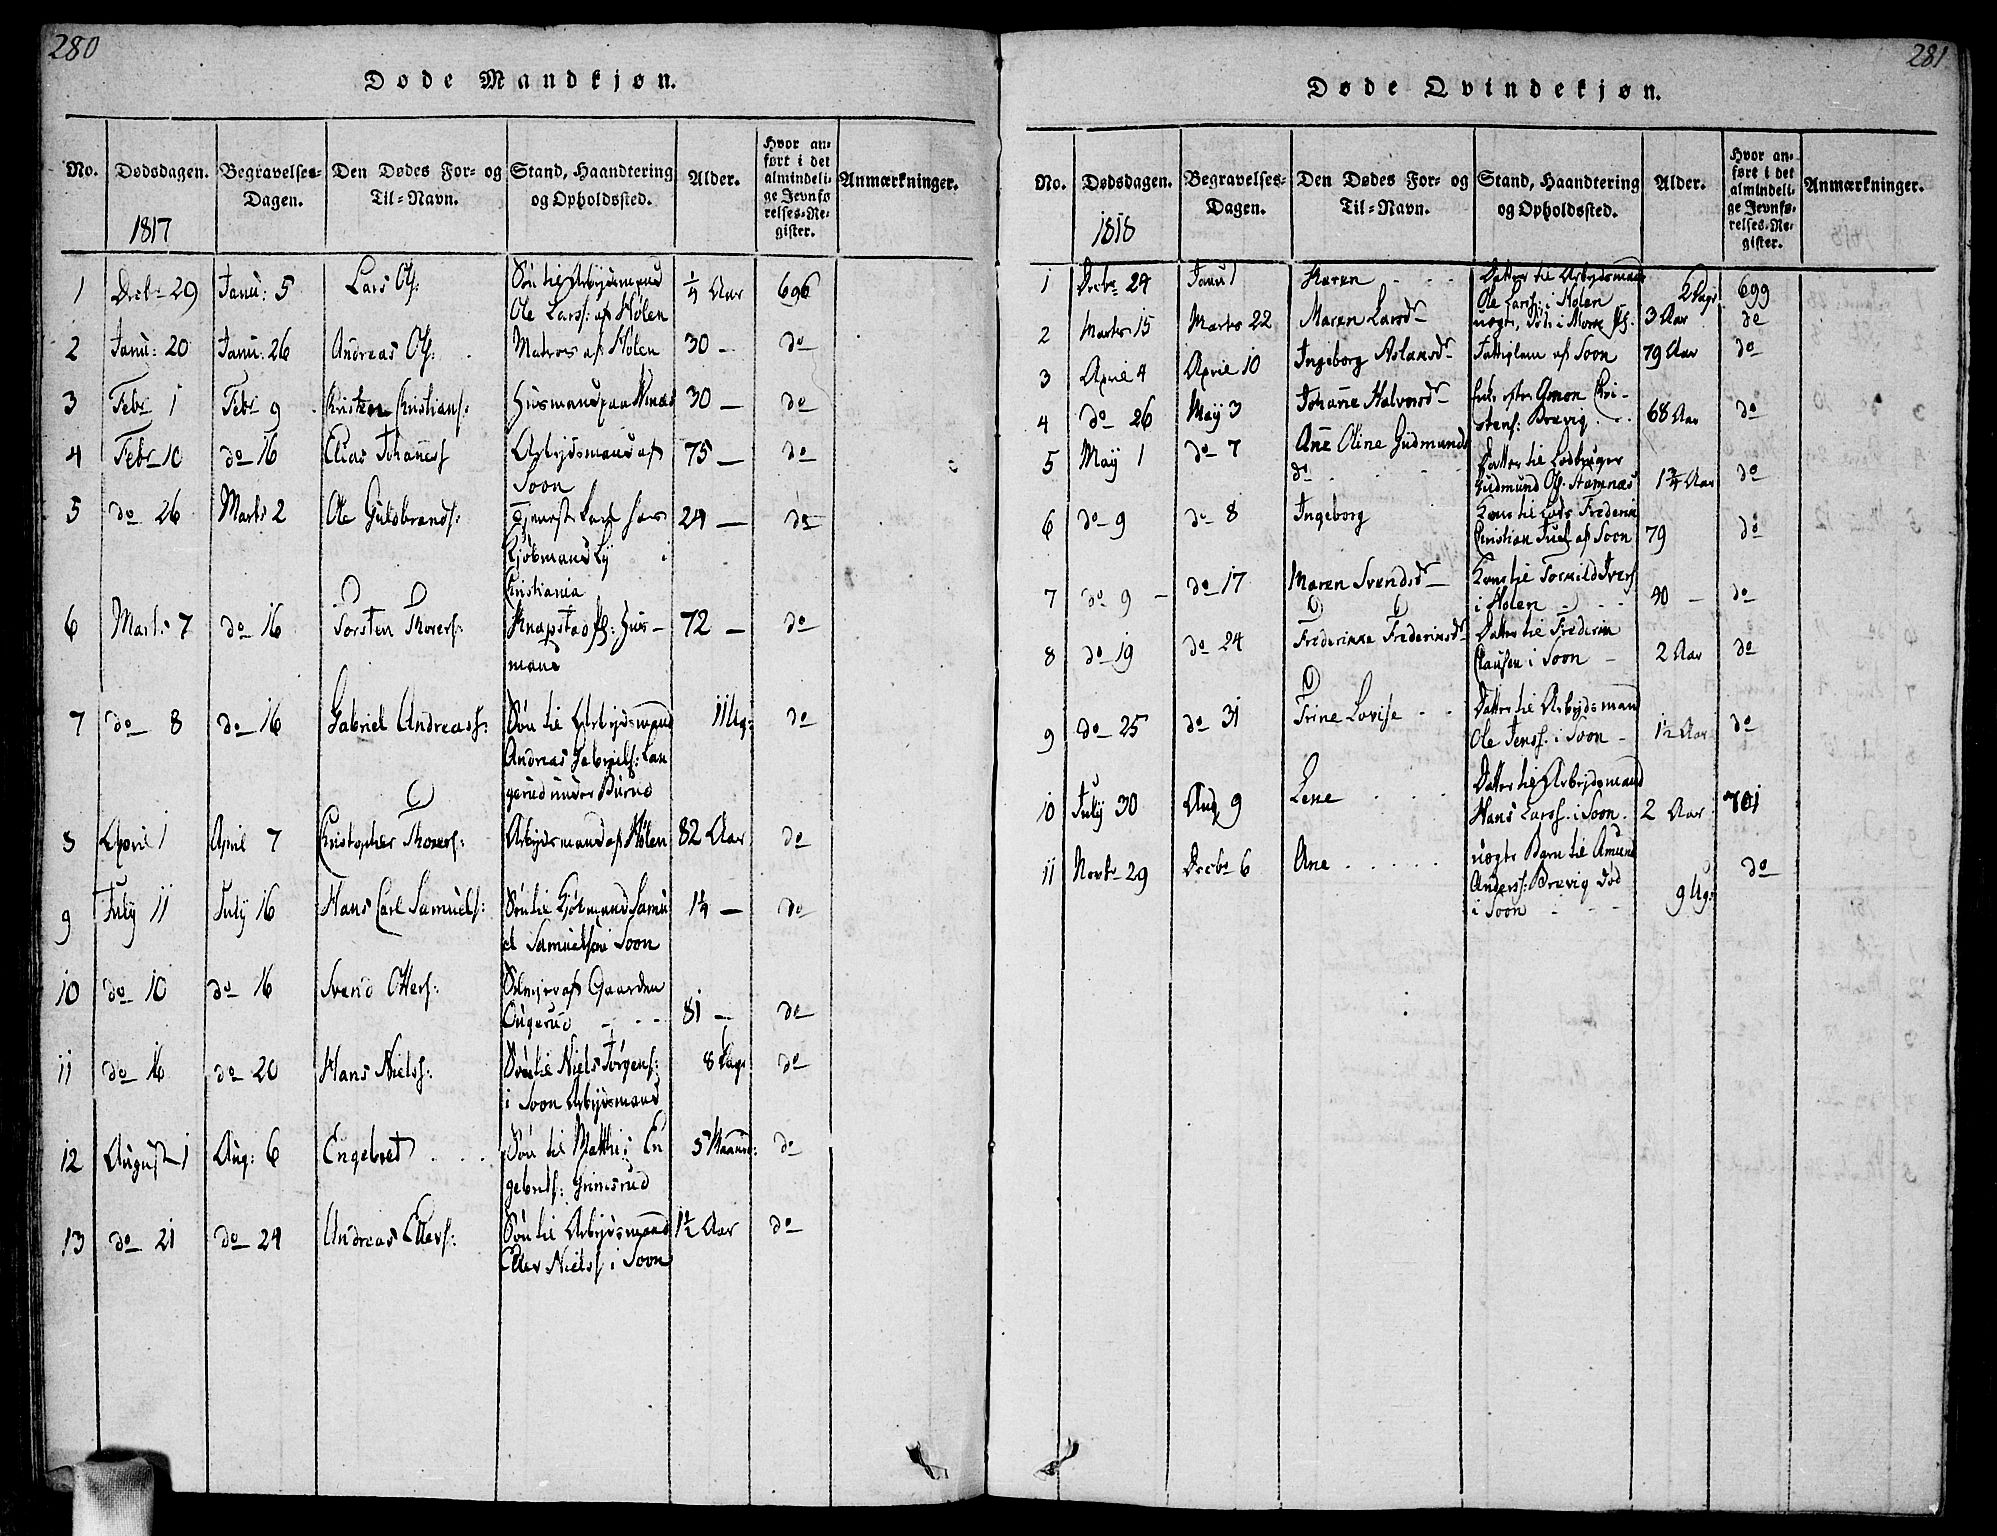 280
Døde Mandkjøn.
No. Dødsdagen. Begravelses-Dagen. Den Dødes For- og Til-Navn. Stand, Haandtering og Opholdssted. Alder. Hvor anført i det almindelige Jevnførelses-Register. Anmærkninger.
1817
1 Decbr 29 Janu: 5 Lars Ols: Søn til Arbejdsmand ¼ Aar 696
Ole Larss: af Hølen
2 Janu: 20 Janu: 26 Andreas Ols: Matros af Hølen 30 — do
3 Febr 1 Febr 9 Kristen Kristians: Huusmand paa 30 — do
4 Febr 10 do 16 Elias Johanness Arbejdsmand af 75 — do
Soon
5 do 26 Marts 2 Ole Guldbrands: Tjenest Karl hos 24 — do
Kjøbmand Ly i
Christiania
6 Marts 7 do 16 Torsten Thorers: Knapstad Huus- 72 — do
mand
7 do 8 do 16 Gabriel Andreass: Søn til Arbejdsmand 11 Ug: do
Andreas Gabriels: Lan
gerud under Burud
8 April 1 April 7 Christopher Thorers: Arbejdsmand af Hølen 82 Aar do
9 July 11 July 16 Hans Carl Samuels: Søn til Kjøbmand Samu 1¼ — do
el Samuelsen i Soon
10 do 10 do 16 Svend Otters: af Gaarden
81 — do
11 do 16 do 20 Hans Niels: Søn til Niels Jørgens: 8 Dage do
i Soon Arbejdsmand
12 August 1 Aug: 6 Engebret Søn til Matthi: En 5 Maand: do
gebrets: Grimsrud
13 do 21 do 24 Andreas Ellers: Søn til Arbejdsmand 1½ Aar do
Eller Nielss i Soon
281
Døde Qvindekjøn.
No. Dødsdagen. Begravelses-Dagen. Den Dødes For- og Til-Navn. Stand, Haandtering og Opholdssted. Alder. Hvor anført i det almindelige Jevnførelses-Register. Anmærkninger.
1818
1 Decbr 24 Janu 1 Karen Datter til Arbejdsmand
Ole Larss: i Hølen 2 Dage 699
2 Marts 15 Marts 22 Maren Larsdr uægte, død i 3 Aar do
3 April 4 April 10 Ingeborg Aslansdr Fattiglem af Soon 79 Aar do
4 do 26 May 3 Johanne Halvorsdr Enke efter Amon Chri-
stens: Brevig 68 Aar do
5 May 1 do 7 Ane Oline Gudmunds Datter til
dr Gudmund Ols: Stamnæs 1¾ Aar do
6 do 9 do 8 Ingeborg Kone til Lods Frederik
Christian Juel af Soon 79 do
7 do 9 — do 17 Maren Svendsdr Kone til Tormild Ivers:
i Hølen 40 — do
8 do 19 do 24 Frederikke Frederiksdr Datter til Frederik
Clausen i Soon — 2 Aar do
9 do 25 do 31 Trine Lovise Datter til Arbejdsmand
Ole Jenss: i Soon — 1½ Aar do
10 July 30 Aug 9 Lene Datter til Arbejdsmand
Hans Larss: i Soon 2 Aar 701
11 Novbr 29 Decbr 6 Ane uægte Barn til Amund do
Anderss: Brevig død
i Soon 9 Ug: